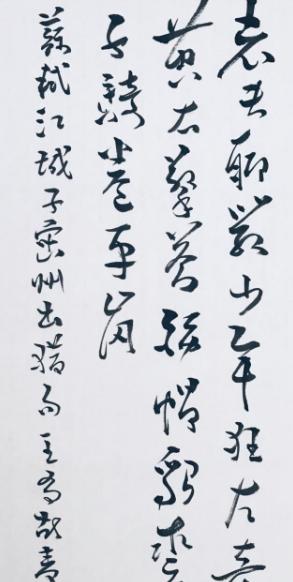 老夫聊發少年狂左牽
黄右擎蒼錦帽貂裘
千騎卷平崗
蘇軾江城子密州出獵句王